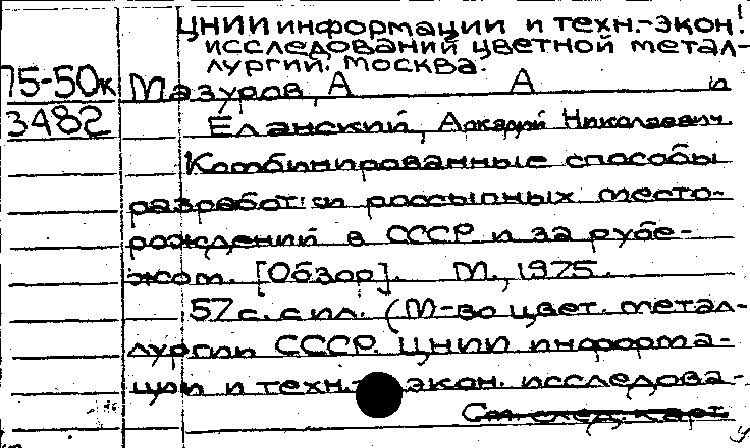 ЦНИИ информации и техн.-экон.
исследований цветной метал-
лургии. Москва.
75-50к Мазуров, А А и
3482 Еланский, Аркадий Николаевич
Комбинированные способы
разработки россыпных место-
рождений в СССР и за рубе-
жом. [Обзор]. М., 1975.
57 с. с ил. (М-во цвет. метал-
лургии СССР. ЦНИИ информа-
ции и техн.- экон. исследова-
См. след. карт